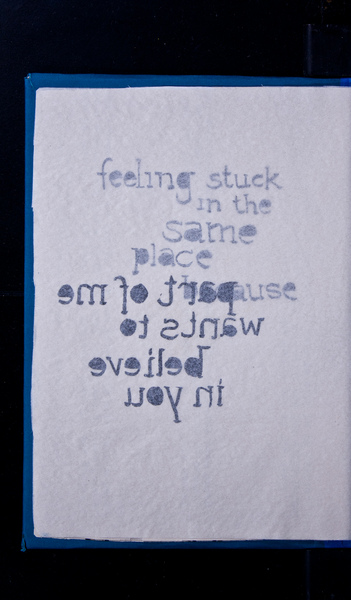 feeling stuck
in the
same
place
because
part of me
wants to
believe
in you